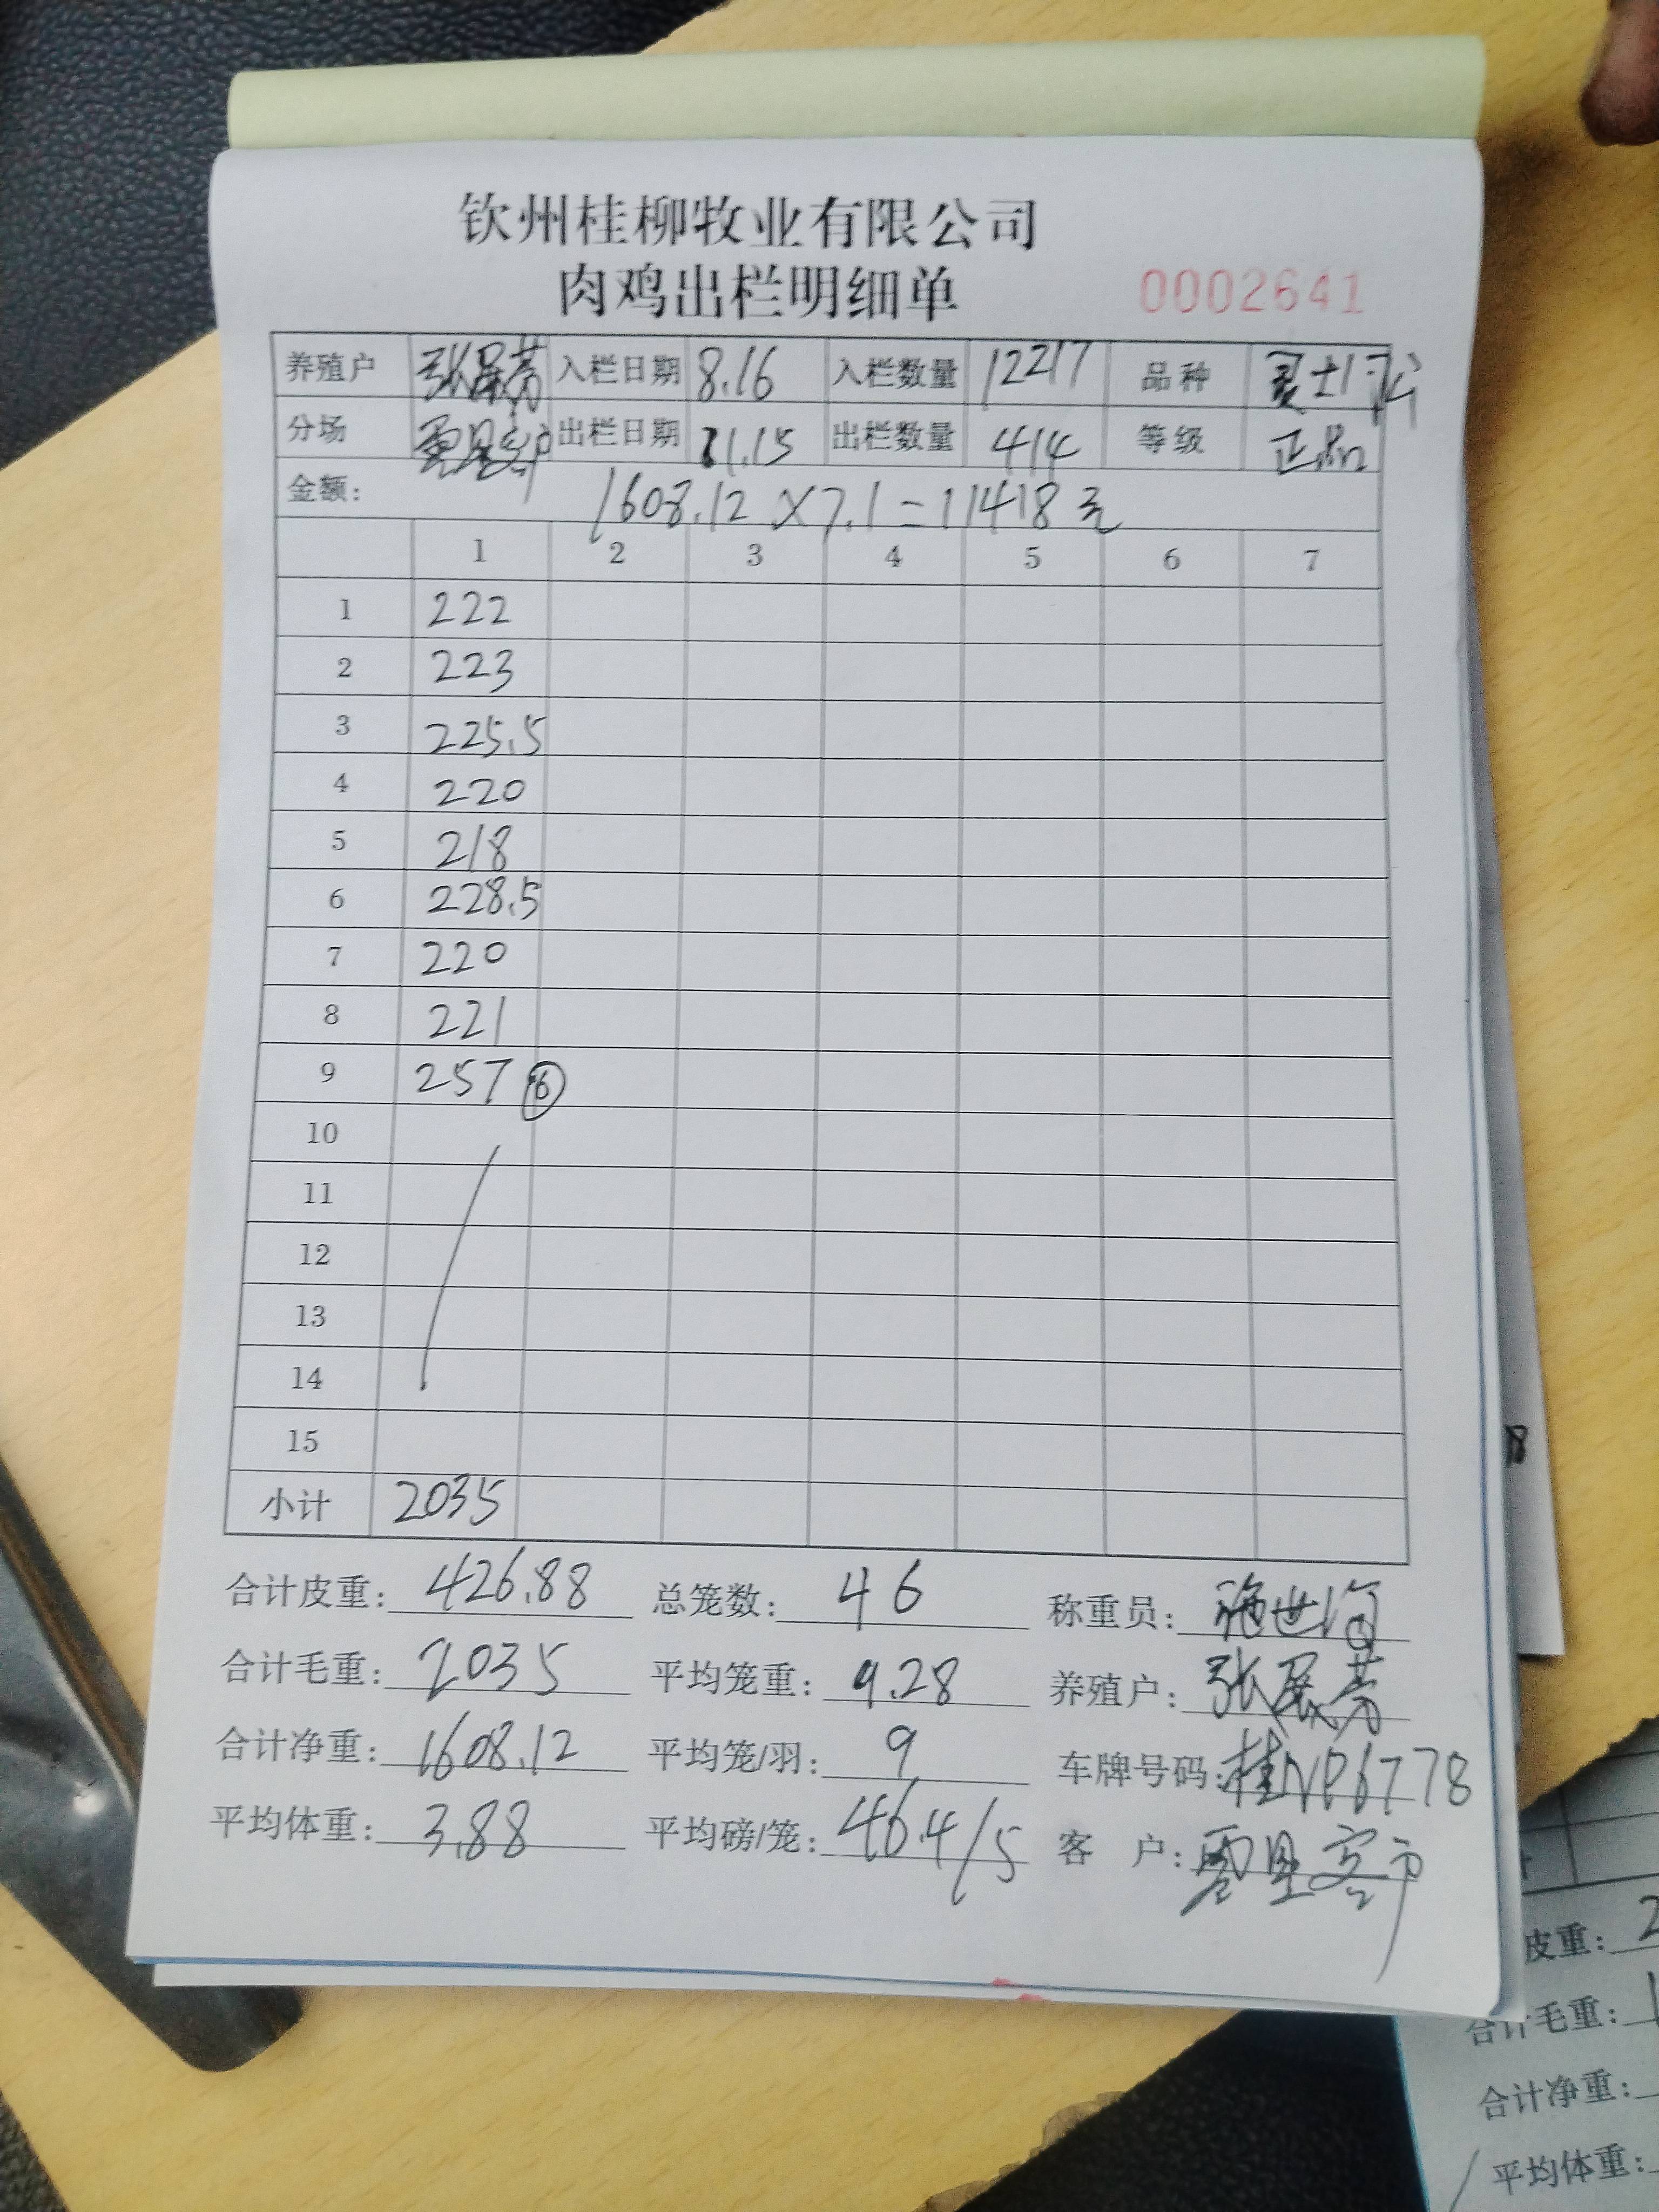 钦州桂柳牧业有限公司
肉鸡出栏明细单 0002641
养殖户 张展芳 入栏日期 8.16 入栏数量 12217 品种
分场 出栏日期 11.15 出栏数量 414 等级 正品
金额: 1608.12×7.1=11418元
1 2 3 4 5 6 7
1 222
2 223
3 225.5
4 220
5 218
6 228.5
7 220
8 221
9 257 ⑥
10
11
12
13
14
15
小计 2035
合计皮重: 426.88 总笼数: 46 称重员:
合计毛重: 2035 平均笼重: 9.28 养殖户: 张展芳
合计净重: 1608.12 平均笼/羽: 9 车牌号码: 桂NP6778
平均体重: 3.88 平均磅/笼: 46.4/5 客 户:
皮重: 2
合计毛重: 1
合计净重:
平均体重: